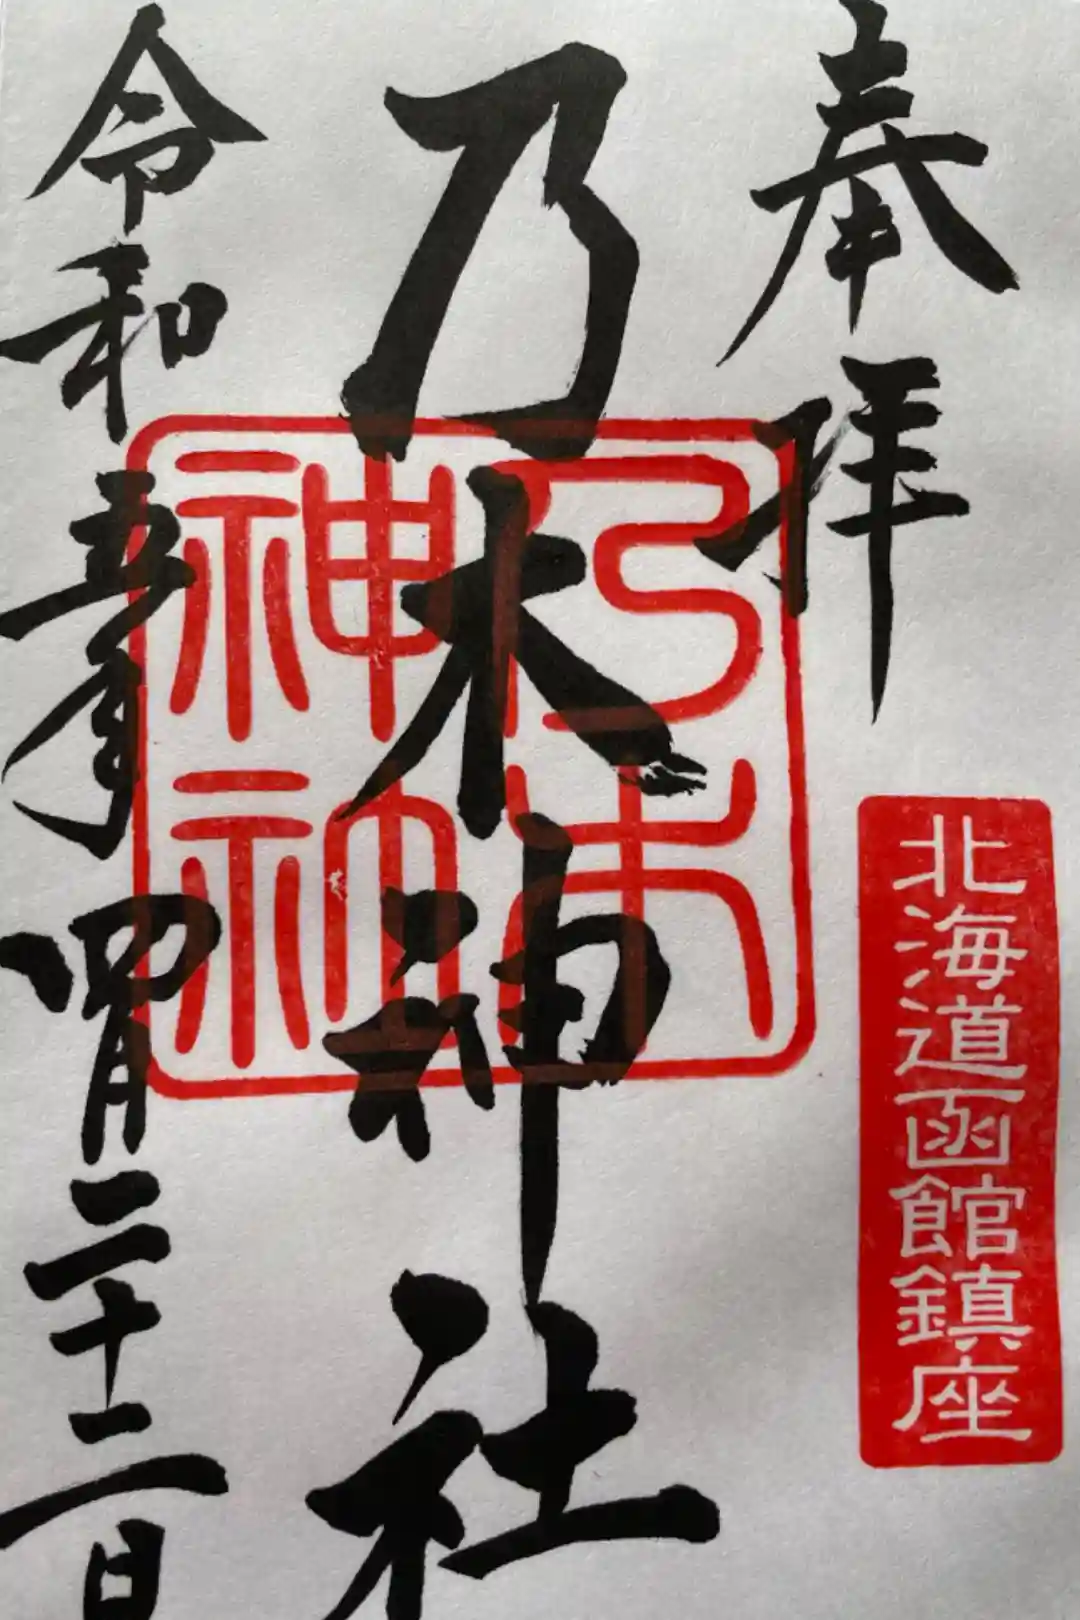 奉拝
北海道函館鎮座
乃木神社
乃木神社
令和五年四月二十二日